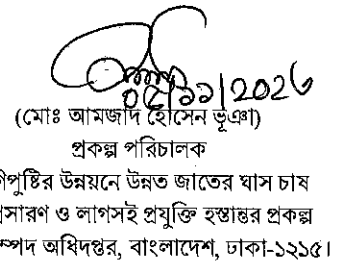 ০৫/১১/2023
(মোঃ আমজাদ হোসেন ভূঞা)
প্রকল্প পরিচালক
পুষ্টির উন্নয়নে উন্নত জাতের ঘাস চাষ
সারণ ও লাগসই প্রযুক্তি হস্তান্তর প্রকল্প
ম্পদ অধিদপ্তর, বাংলাদেশ, ঢাকা-১২১৫।